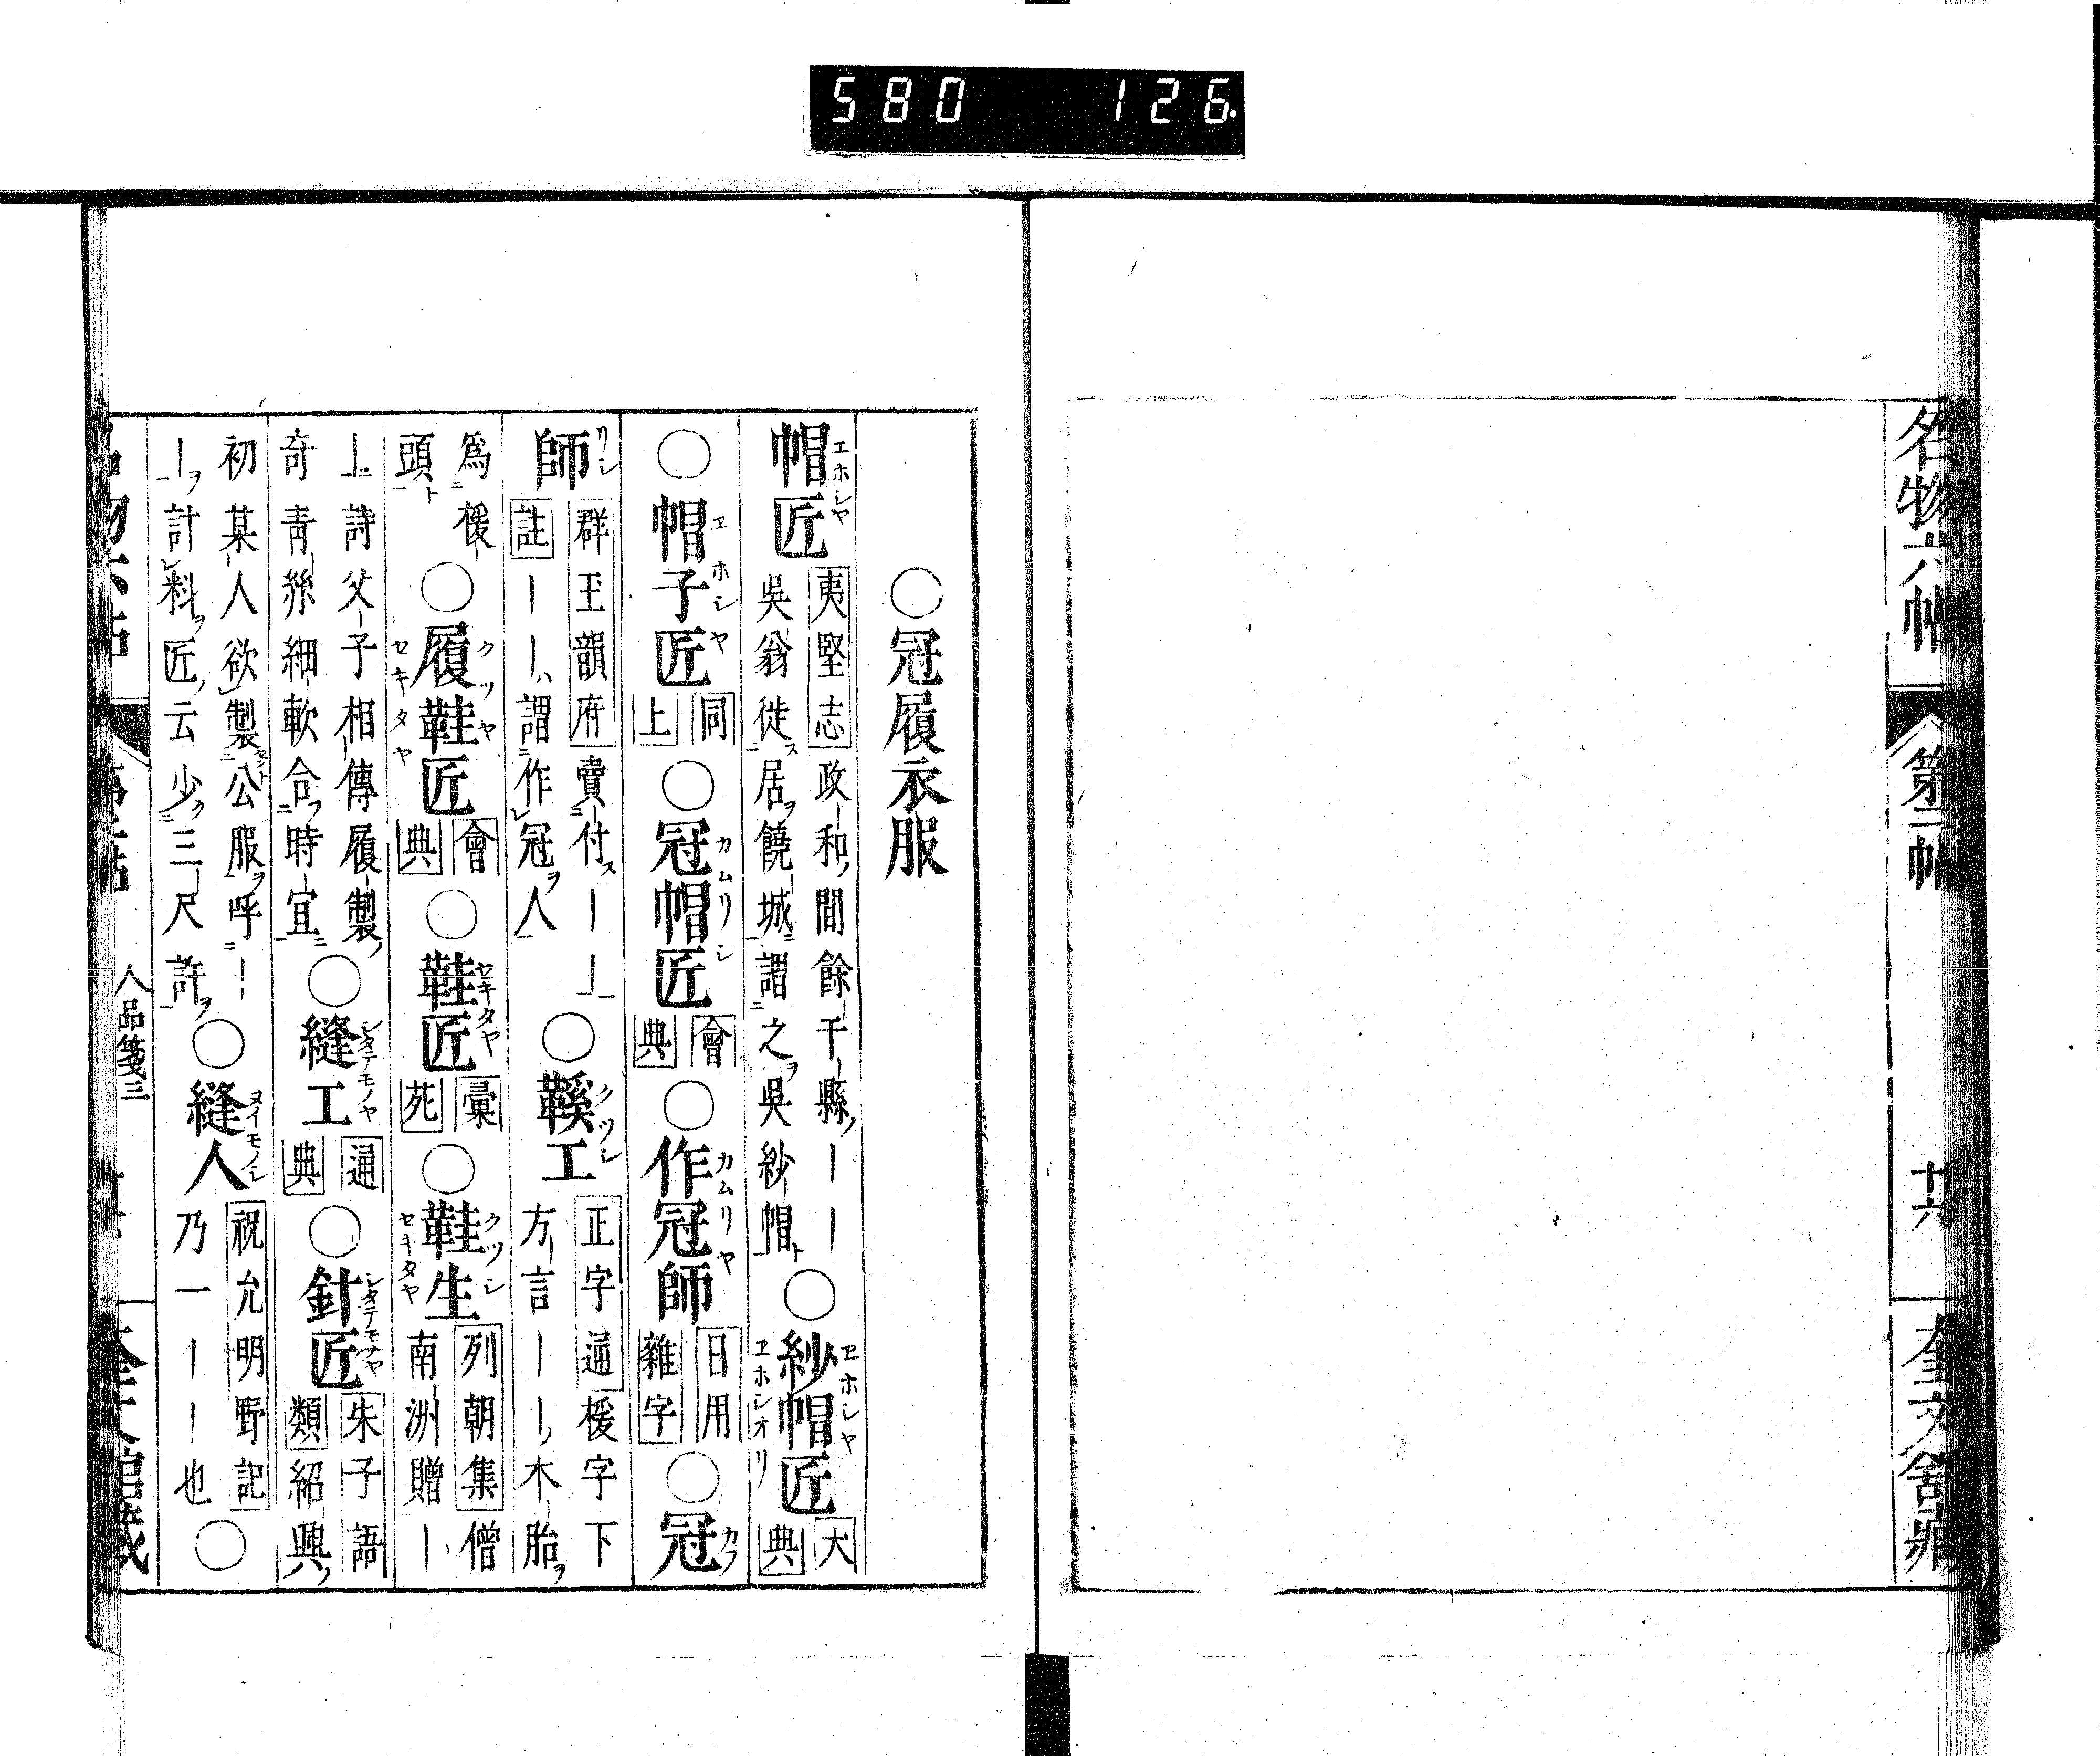 580 126.
名物六帖
第二帖
十六
奎文舘蔵
○冠履衣服
帽匠 エホシヤ 夷堅志 政和ノ間餘干縣ノ｜｜
吳翁徙ス居ヲ饒城ニ謂之ヲ吳紗帽ト ○紗帽匠 ヱホシヤ ヱホシオリ 大典
○帽子匠 ヱホシヤ 同上 ○冠帽匠 カムリシ 會典 ○作冠師 カムリヤ 日用雜字 ○冠 カフ
師 リシ 群玉韻府 賣付ス｜｜
註 ｜｜ハ謂作冠ヲ人 ○鞵工 クツシ 正字通 楥字下
方言｜｜ノ木胎ヲ
爲楥
頭ト ○履鞋匠 クツヤ セキタヤ 會典 ○鞋匠 セキタヤ 彙苑 ○鞋生 クツシ セキタヤ 列朝集 僧
南洲贈｜
｜詩父子相傳履製ノ
奇青絲細軟合フ時宜ニ ○縫工 シタテモノヤ 通典 ○針匠 シタテモノヤ 朱子語類 紹興ノ
初某人欲製セント公服ヲ呼｜
｜ヲ計料ヲ匠ノ云少ク三尺許ヲ ○縫人 ヌイモノシ 祝允明野記
乃一｜｜也 ○
人品箋三